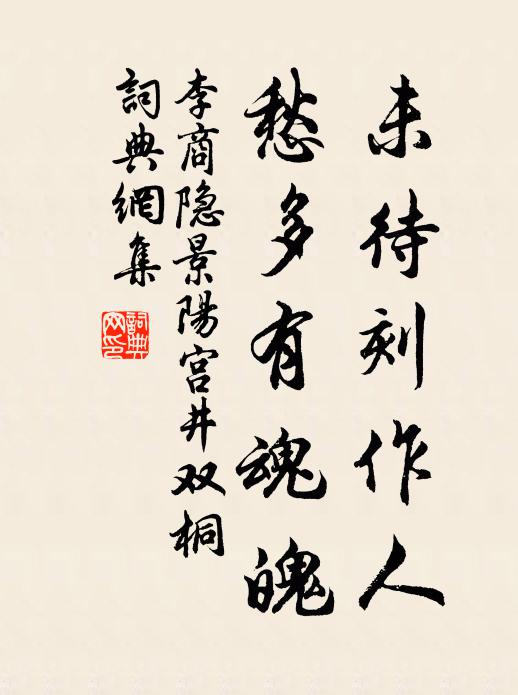 未待刻作人
愁多有魂魄
李商隐景陽宫井双桐
詞典網集
詞典
网印